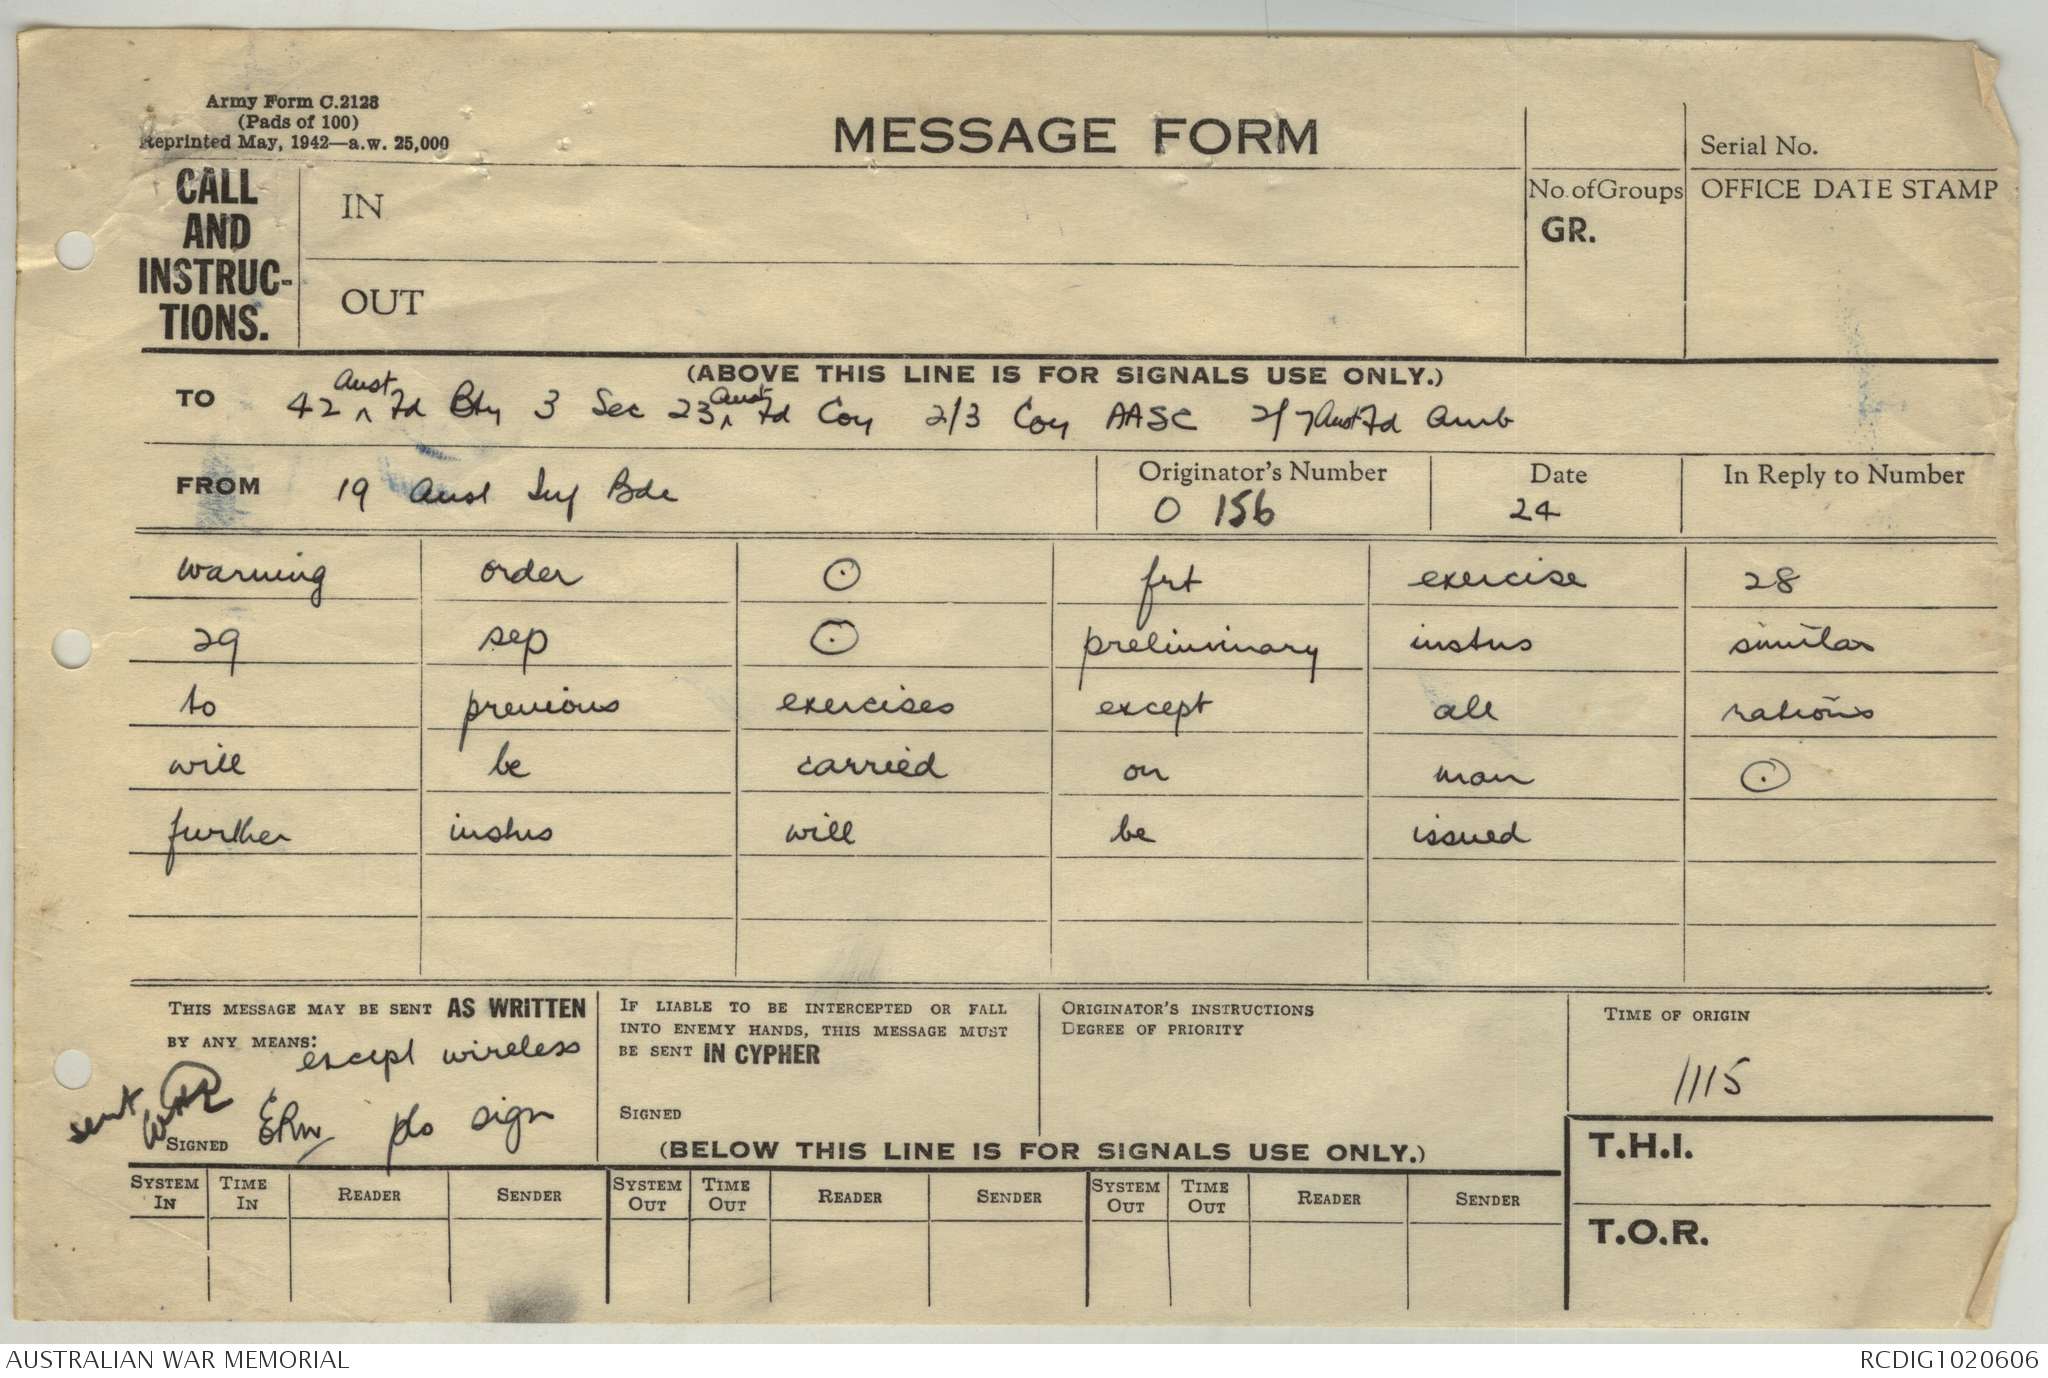 Army Form C.2128
(Pads of 100)
Reprinted May, 1942—a.w. 25,000
MESSAGE FORM
Serial No.
CALL AND INSTRUC-TIONS.
IN
No. of Groups
GR.
OFFICE DATE STAMP
OUT
(ABOVE THIS LINE IS FOR SIGNALS USE ONLY.)
TO 42 Aust Fd Bty 3 Sec 23 Aust Fd Coy 2/3 Coy AASC 2/7 Aust Fd Amb
FROM 19 Aust Inf Bde
Originator's Number
O 156
Date
24
In Reply to Number
warning order ⊙ frt exercise 28
29 sep ⊙ preliminary instns similar
to previous exercises except all rations
will be carried on man ⊙
further instns will be issued
THIS MESSAGE MAY BE SENT AS WRITTEN
BY ANY MEANS:
except wireless
sent
SIGNED plo sign
IF LIABLE TO BE INTERCEPTED OR FALL
INTO ENEMY HANDS, THIS MESSAGE MUST
BE SENT IN CYPHER
SIGNED
ORIGINATOR'S INSTRUCTIONS
DEGREE OF PRIORITY
TIME OF ORIGIN
1115
(BELOW THIS LINE IS FOR SIGNALS USE ONLY.)
T.H.I.
SYSTEM IN TIME IN READER SENDER SYSTEM OUT TIME OUT READER SENDER SYSTEM OUT TIME OUT READER SENDER
T.O.R.
AUSTRALIAN WAR MEMORIAL
RCDIG1020606